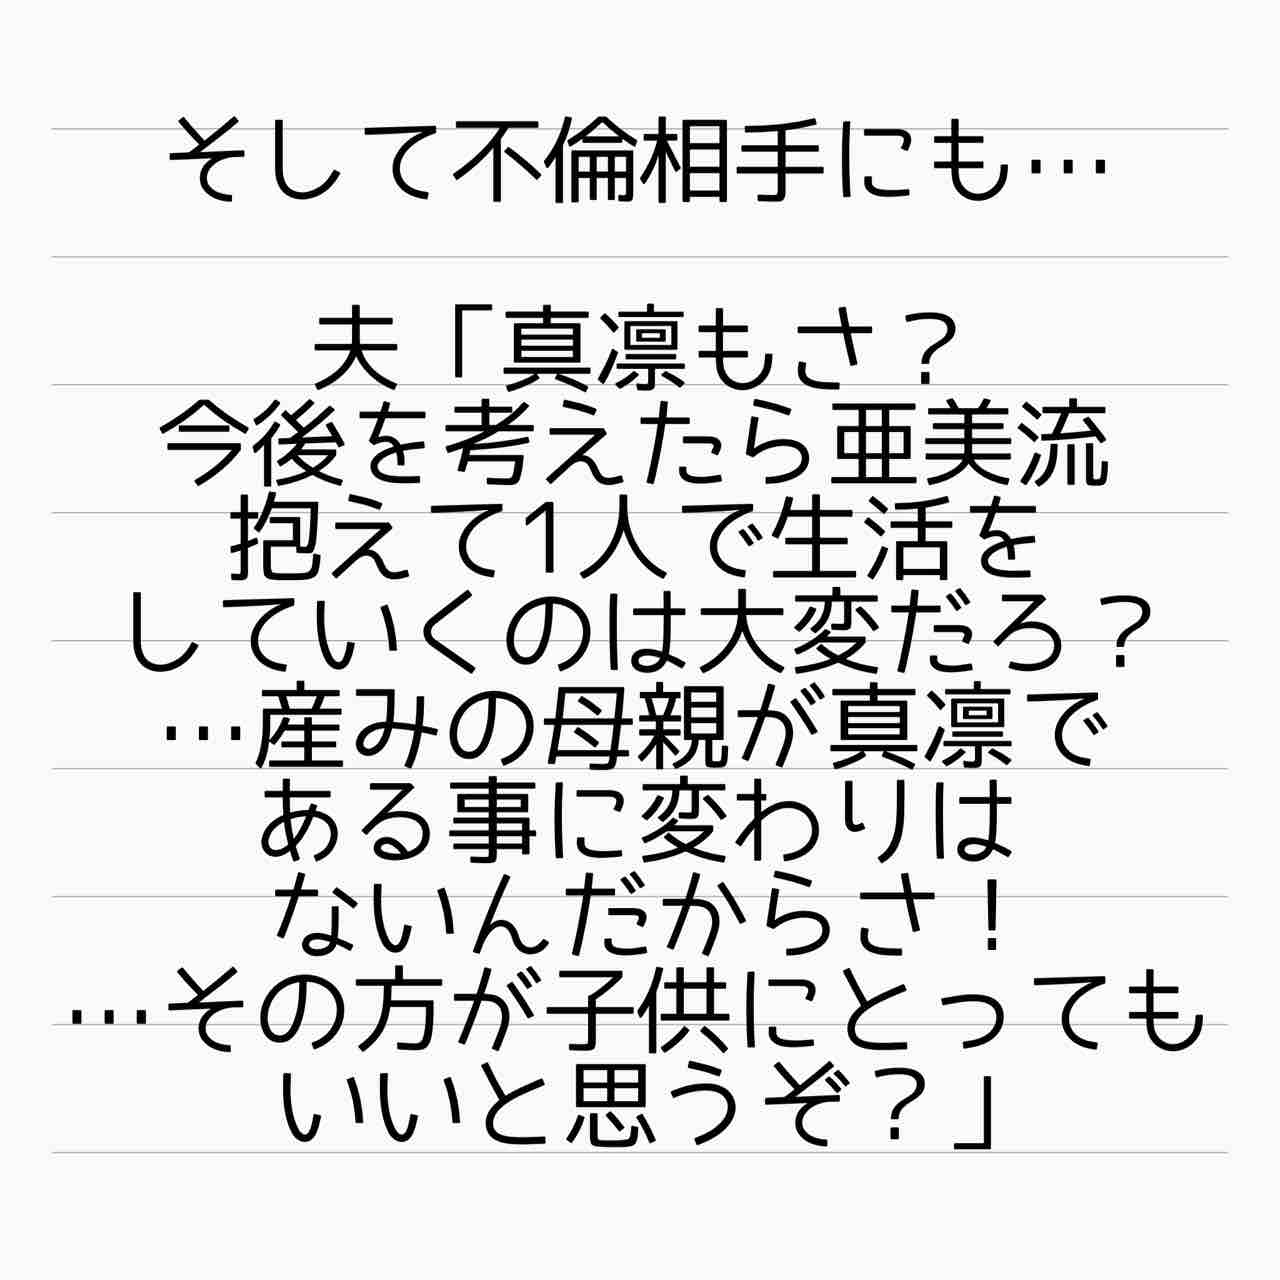 そして不倫相手にも…
夫「真凛もさ？
今後を考えたら亜美流
抱えて1人で生活を
していくのは大変だろ？
…産みの母親が真凛で
ある事に変わりは
ないんだからさ！
…その方が子供にとっても
いいと思うぞ？」